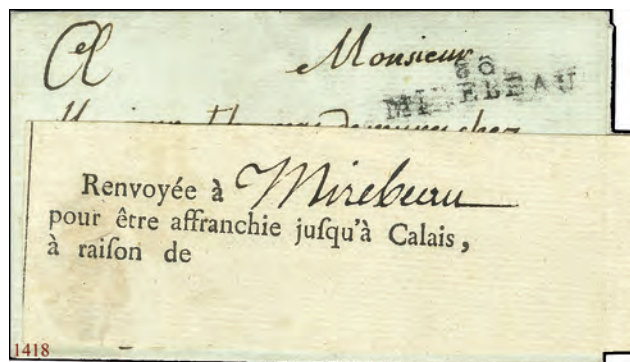 A Monsieur
MIREBEAU
Renvoyée à Mirebeau
pour être affranchie juſqu'à Calais,
à raiſon de
1418